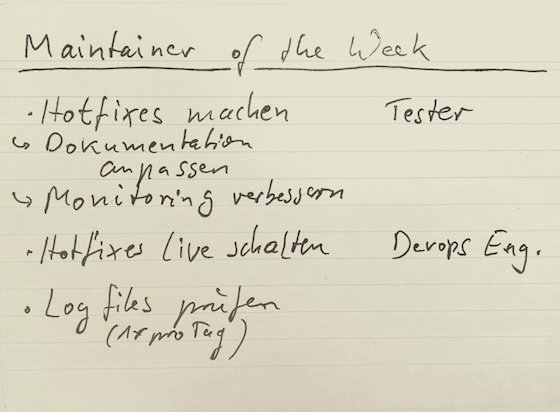 Maintainer of the Week
· Hotfixes machen Tester
↳ Dokumentation
anpassen
↳ Monitoring verbessern
· Hotfixes live schalten Devops Eng.
· Log files prüfen
(1x pro Tag)